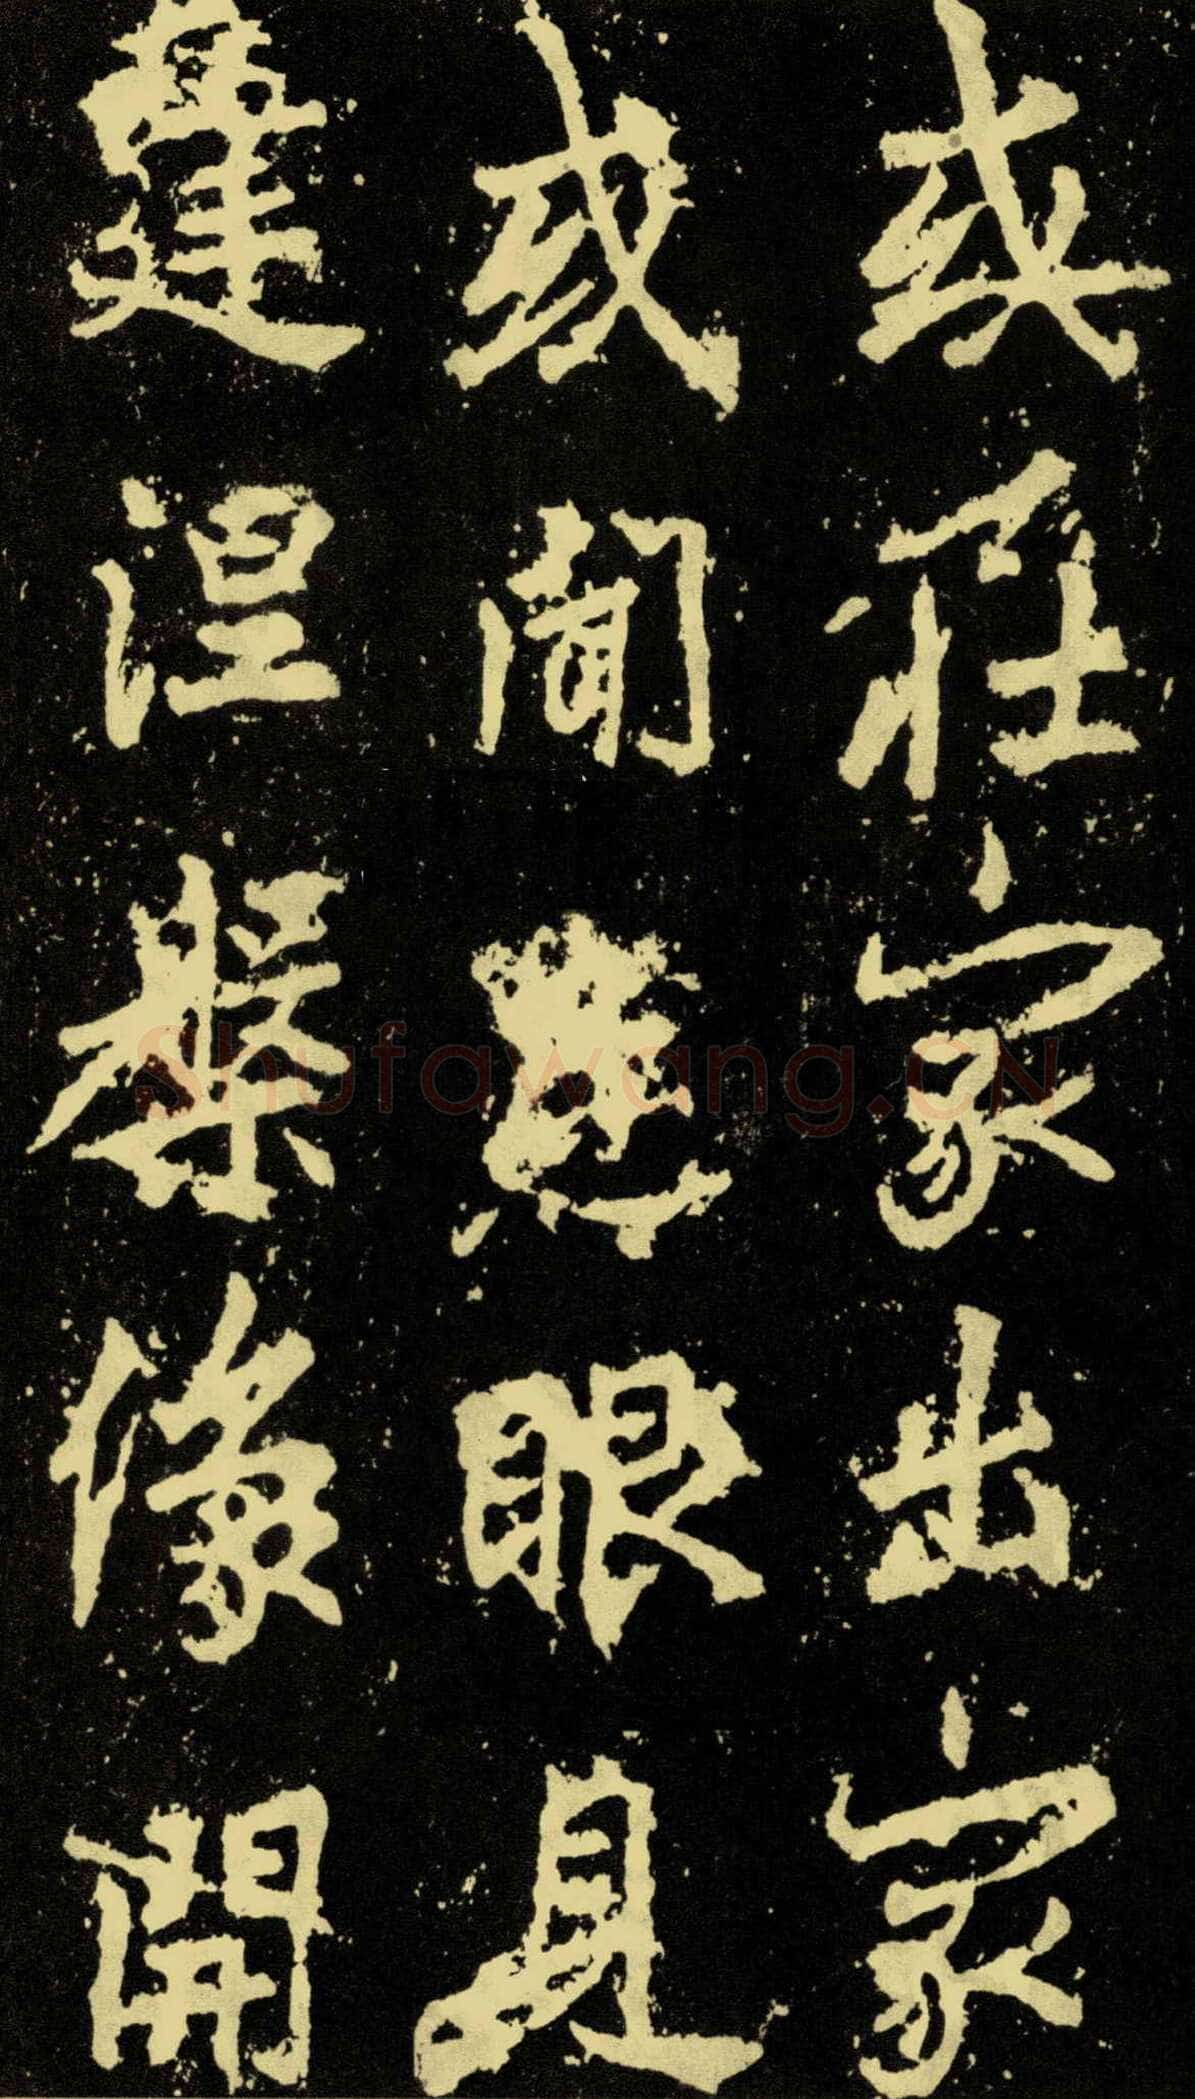 或在家出家
或聞慧眼見
建涅槃像開
Shufawang.cn